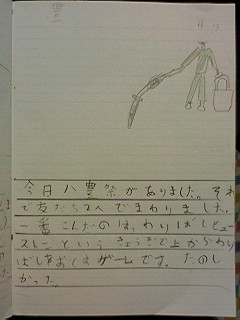 今日八豊祭がありました。それ
で友だち2人でまわりました。
一番こんだのは、わりばしヒュー
ストンというきょうぎで上からわり
ばしをおとすゲームです。たのし
かった。